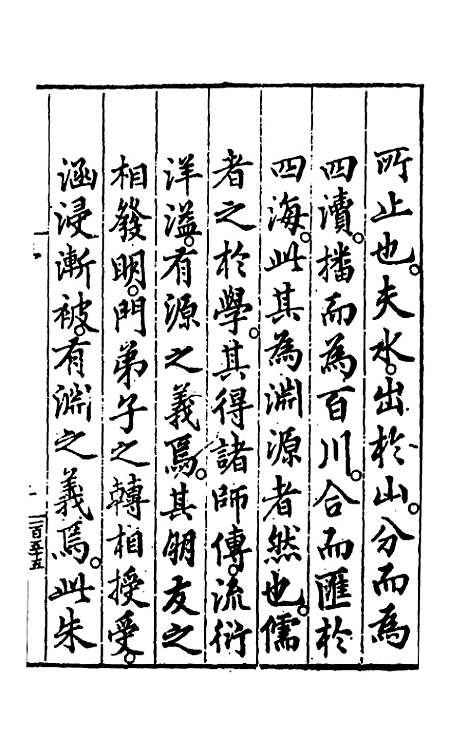 所止也。夫水。出於山。分而為
四瀆。播而為百川。合而匯於
四海。此其為淵源者然也。儒
者之於學。其得諸師傳。流衍
洋溢。有源之義焉。其朋友之
相發明。門弟子之轉相授受。
涵浸漸被。有淵之義焉。此朱
二百五十五